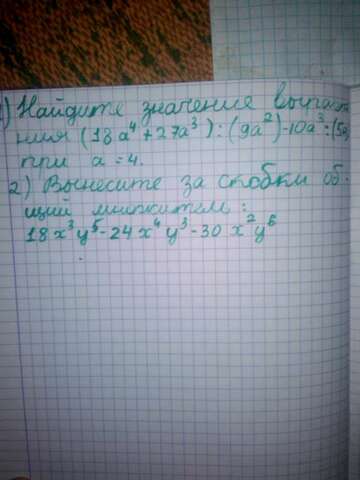 ) Найдите значение выраже
ния (18a⁴+27a³):(9a²)-10a³:(5a
при a=4.
2) Вынесите за скобки об-
щий множитель:
18x³y⁵-24x⁴y³-30x²y⁶